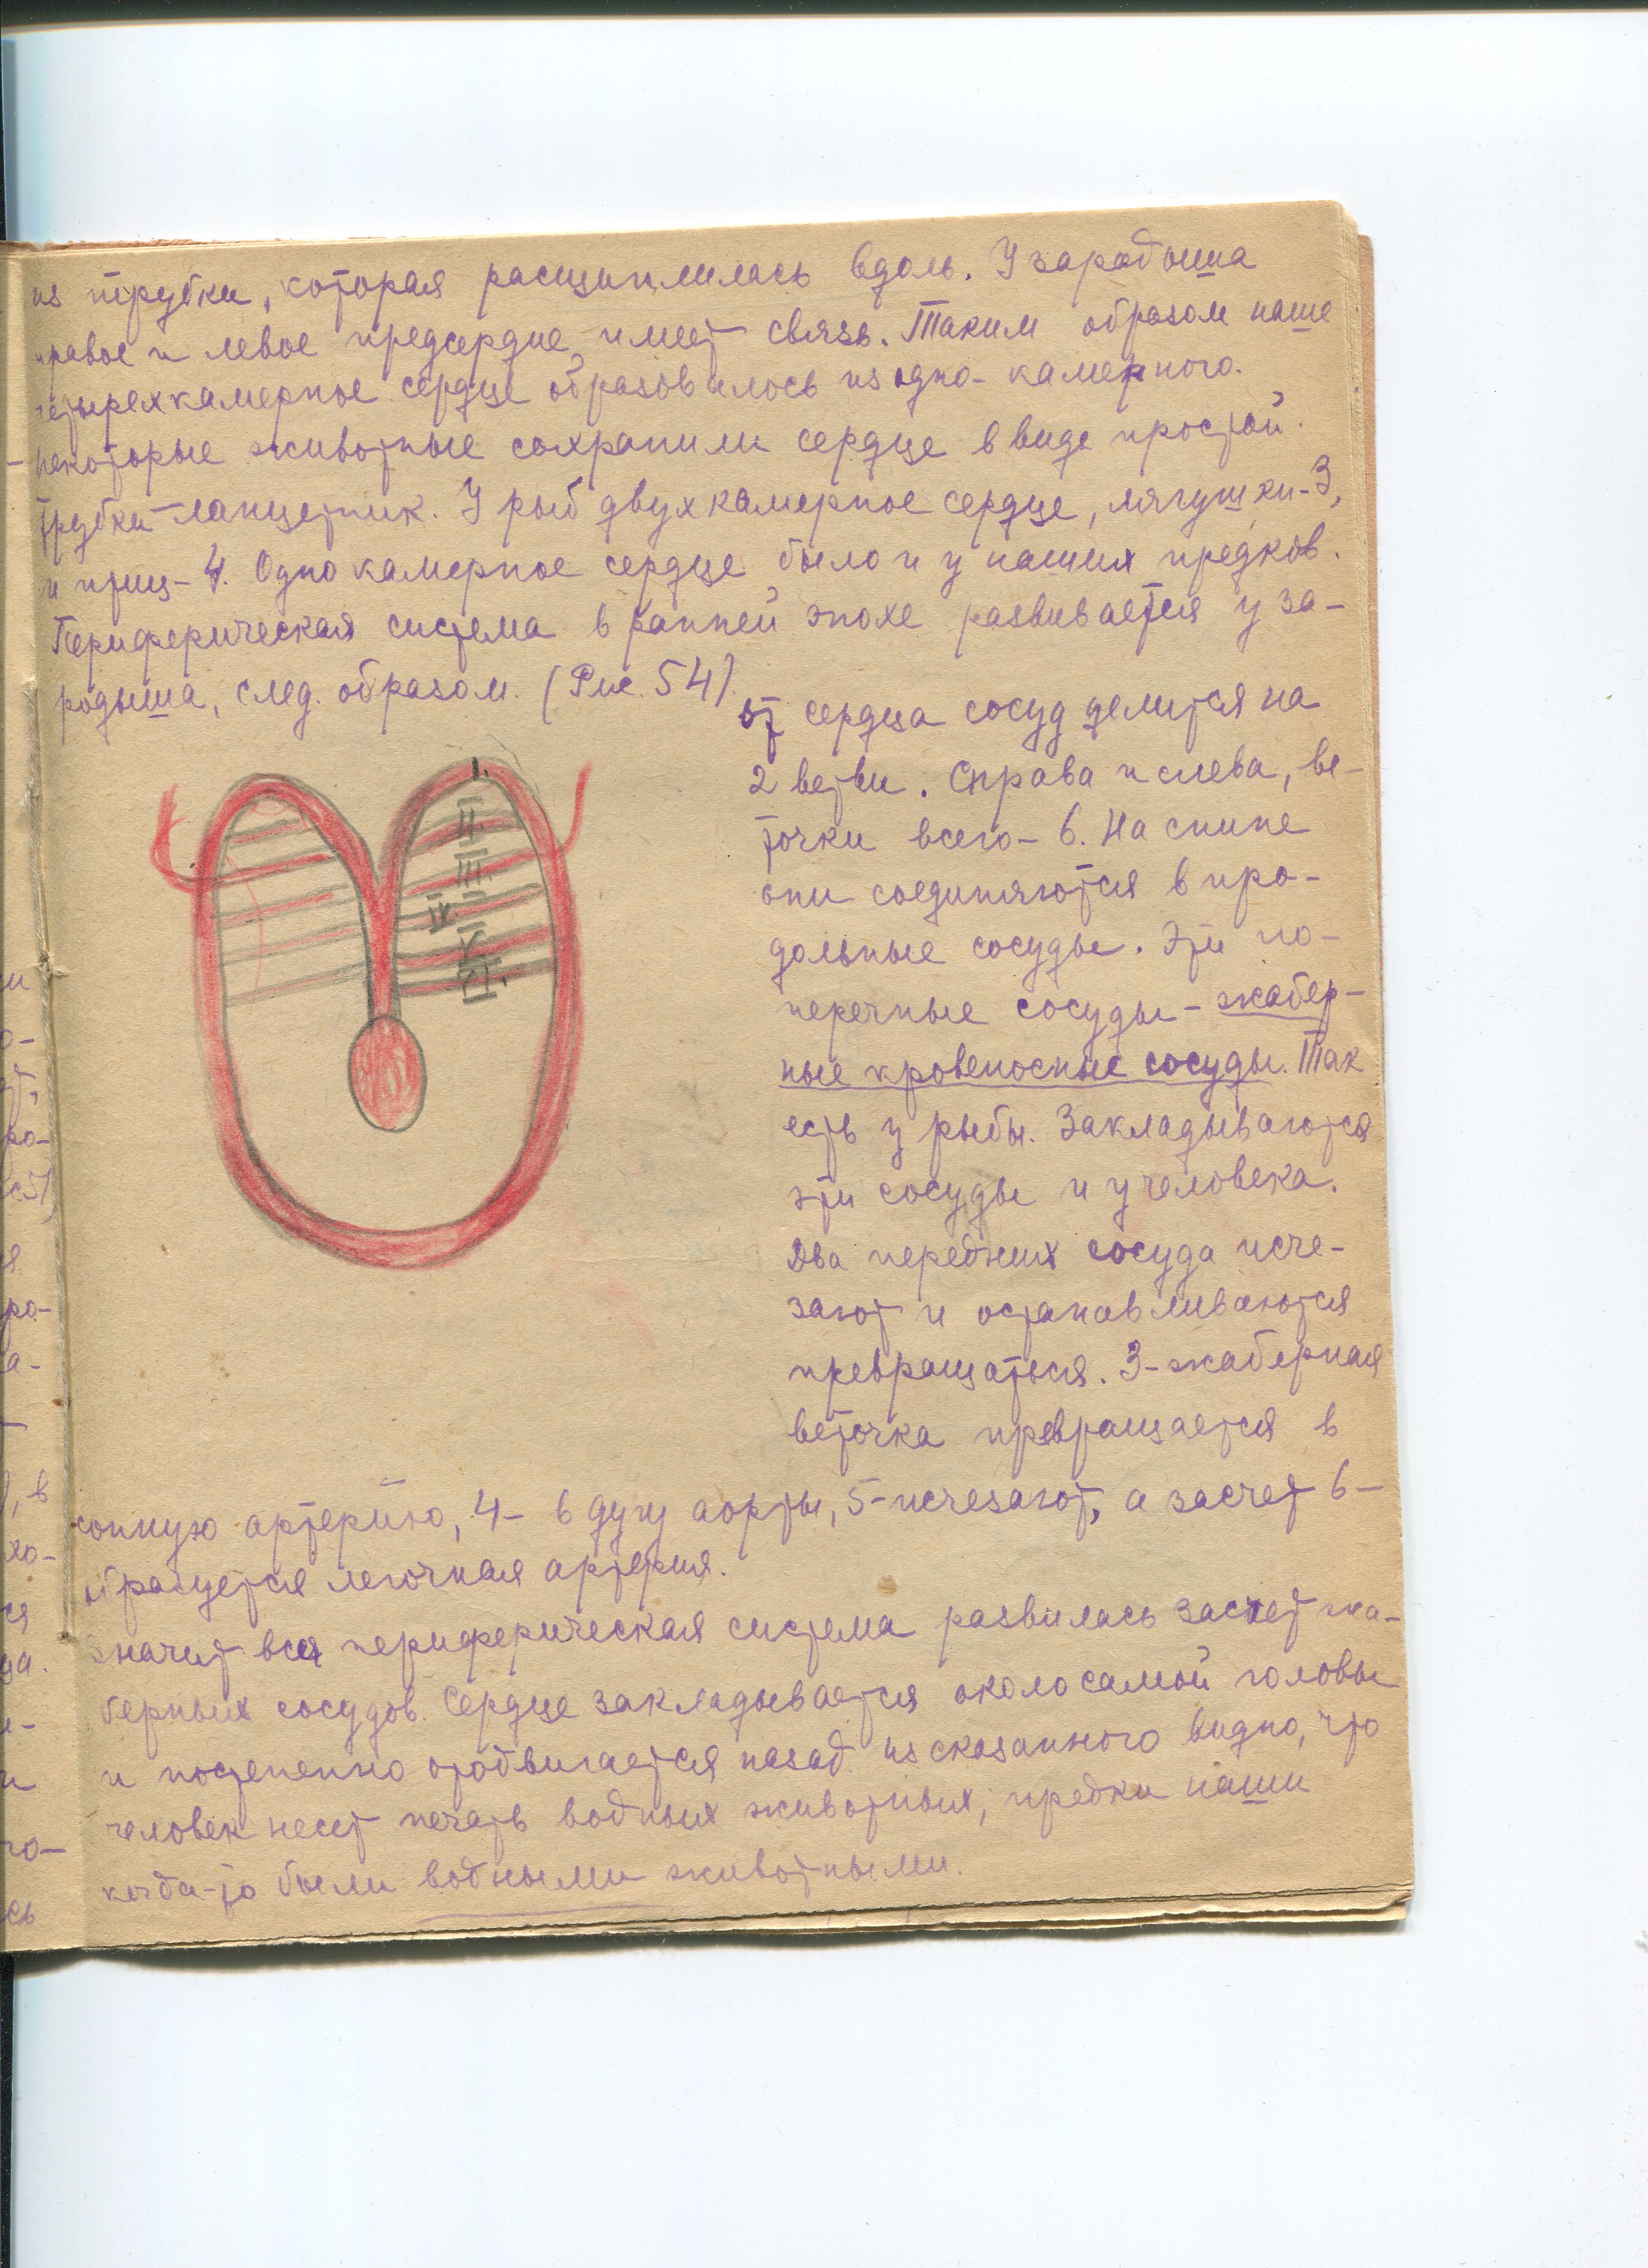 из трубки, которая расщипилась вдоль. У зародыша
правое и левое предсердие имеет связь. Таким образом наше
четырехкамерное сердце образовалось из одно-камерного.
Некоторые животные сохранили сердце в виде простой
трубки - ланцетник. У рыб двухкамерное сердце, лягушки-3,
и птиц-4. Однокамерное сердце было и у наших предков.
Периферическая система в ранней эпохе развивается у за-
родыша, след. образом. (Рис. 54).
от сердца сосуд делится на
2 ветви. Справа и слева, ве-
точки всего-6. На спине
они соединяются в про-
дольные сосуды. Эти по-
перечные сосуды - жабер-
ные кровеносные сосуды. Так
есть у рыбы. Закладываются
эти сосуды и у человека.
Два передних сосуда исче-
зают и останавливаются
превращаться. 3-жаберная
веточка превращается в
сонную артерию, 4- в дугу аорты, 5-исчезают, а засчет 6-
образуется легочная артерия.
Значит вся периферическая система развилась засчет жа-
берных сосудов. Сердце закладывается около самой головы
и постепенно отодвигается назад. из сказанного видно, что
человек несет печать водных животных, предки наши
когда-то были водными животными.
I.
II.
III.
IV.
V
VI.